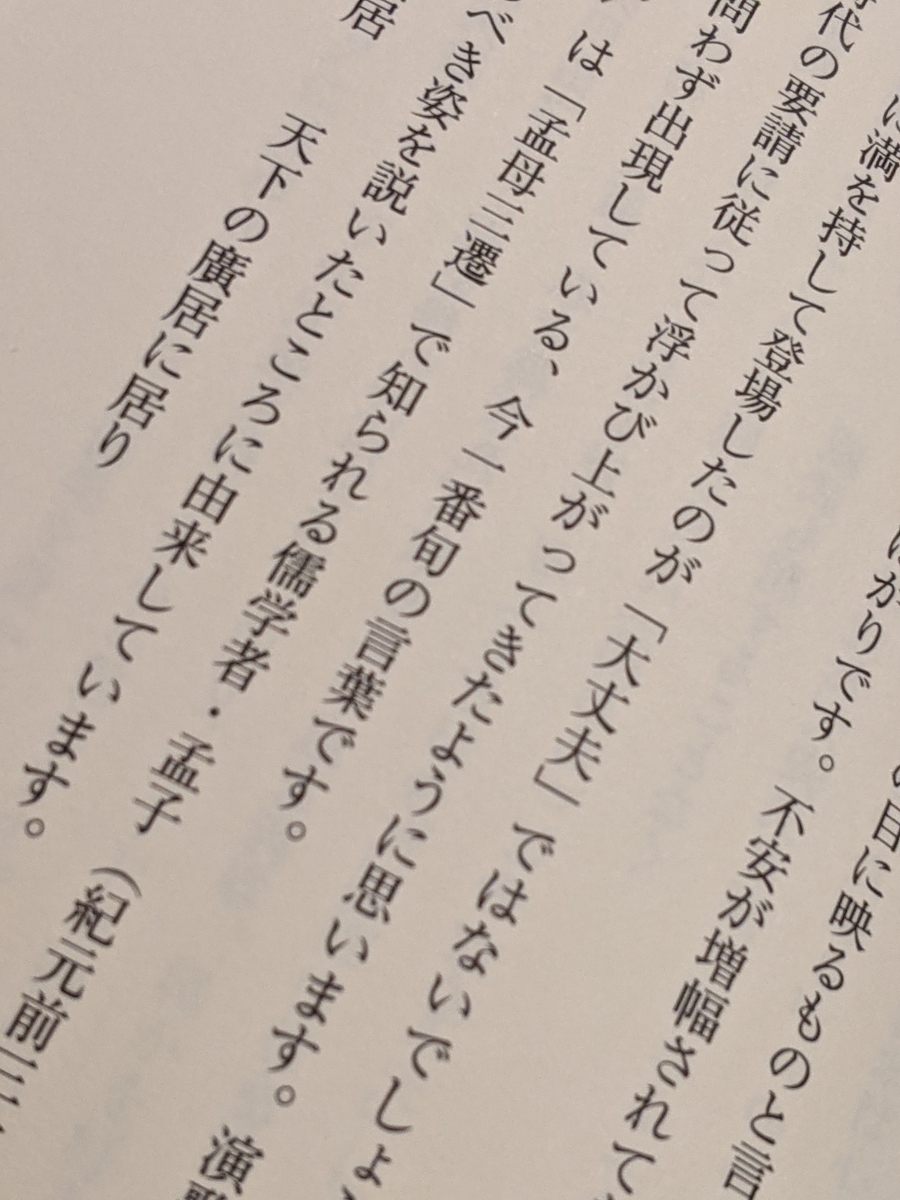 の目に映るものと言
ばかりです。不安が増幅されて
に満を持して登場したのが「大丈夫」ではないでしょ
時代の要請に従って浮かび上がってきたように思います。演
問わず出現している、今一番旬の言葉です。
は「孟母三遷」で知られる儒学者・孟子（紀元前三
べき姿を説いたところに由来しています。
居　天下の廣居に居り